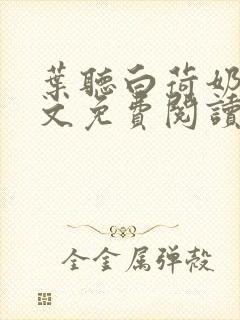 葉聽白荷奶
文免費閱讀
全金属弹殼